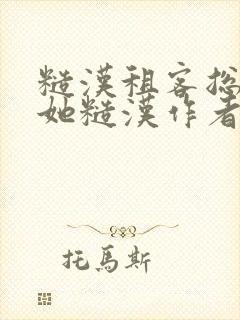 糙漢租客總
她糙漢作者
托馬斯